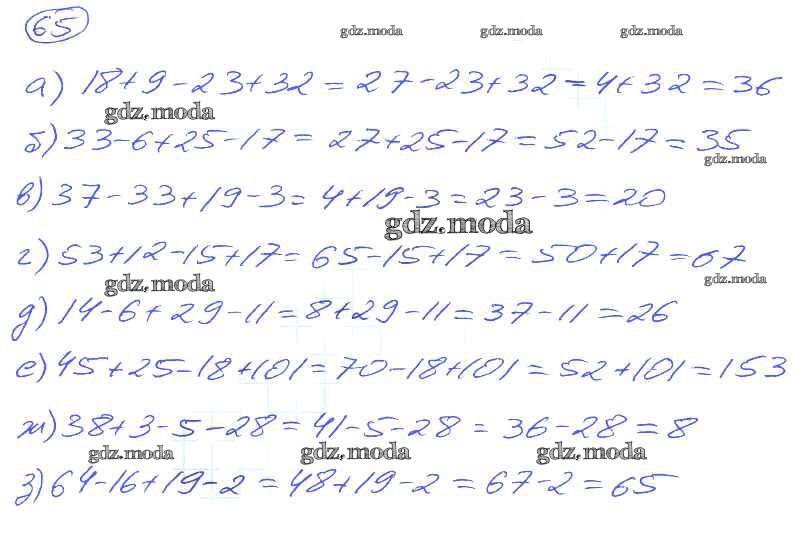 65
gdz.moda gdz.moda gdz.moda
а) 18+9-23+32=27-23+32=4+32=36
gdz.moda
б) 33-6+25-17=27+25-17=52-17=35
gdz.moda
в) 37-33+19-3=4+19-3=23-3=20
gdz.moda
г) 53+12-15+17=65-15+17=50+17=67
gdz.moda gdz.moda
д) 14-6+29-11=8+29-11=37-11=26
е) 45+25-18+101=70-18+101=52+101=153
ж) 38+3-5-28=41-5-28=36-28=8
gdz.moda gdz.moda gdz.moda
з) 64-16+19-2=48+19-2=67-2=65